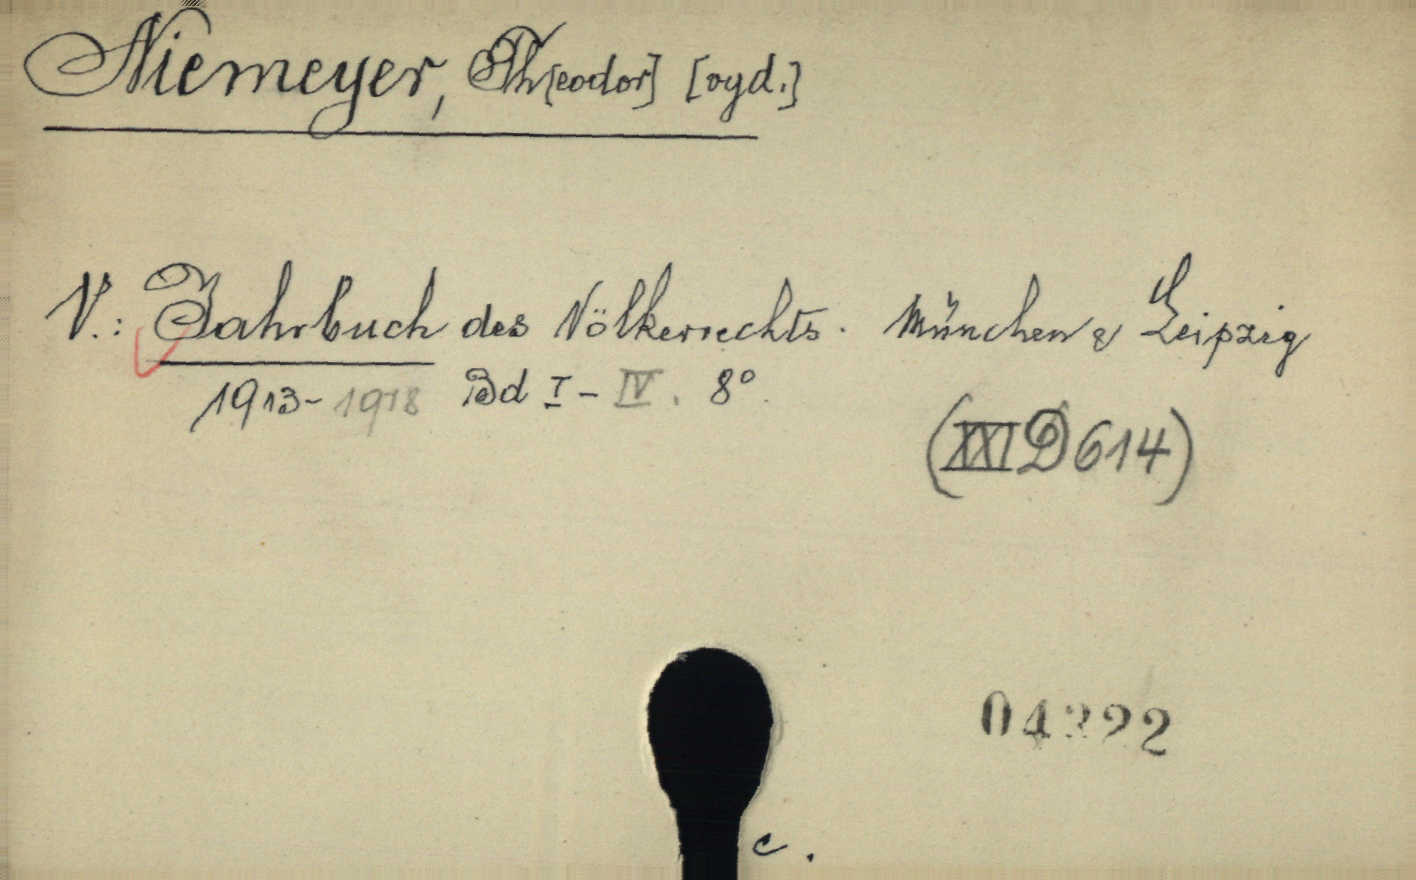 Niemeyer, Th[eodor] [vyd.]
V.: Jahrbuch des Völkerrechts. München & Leipzig
1913-1918 Bd I-IV. 8°
(XXI D 614)
04322
c.